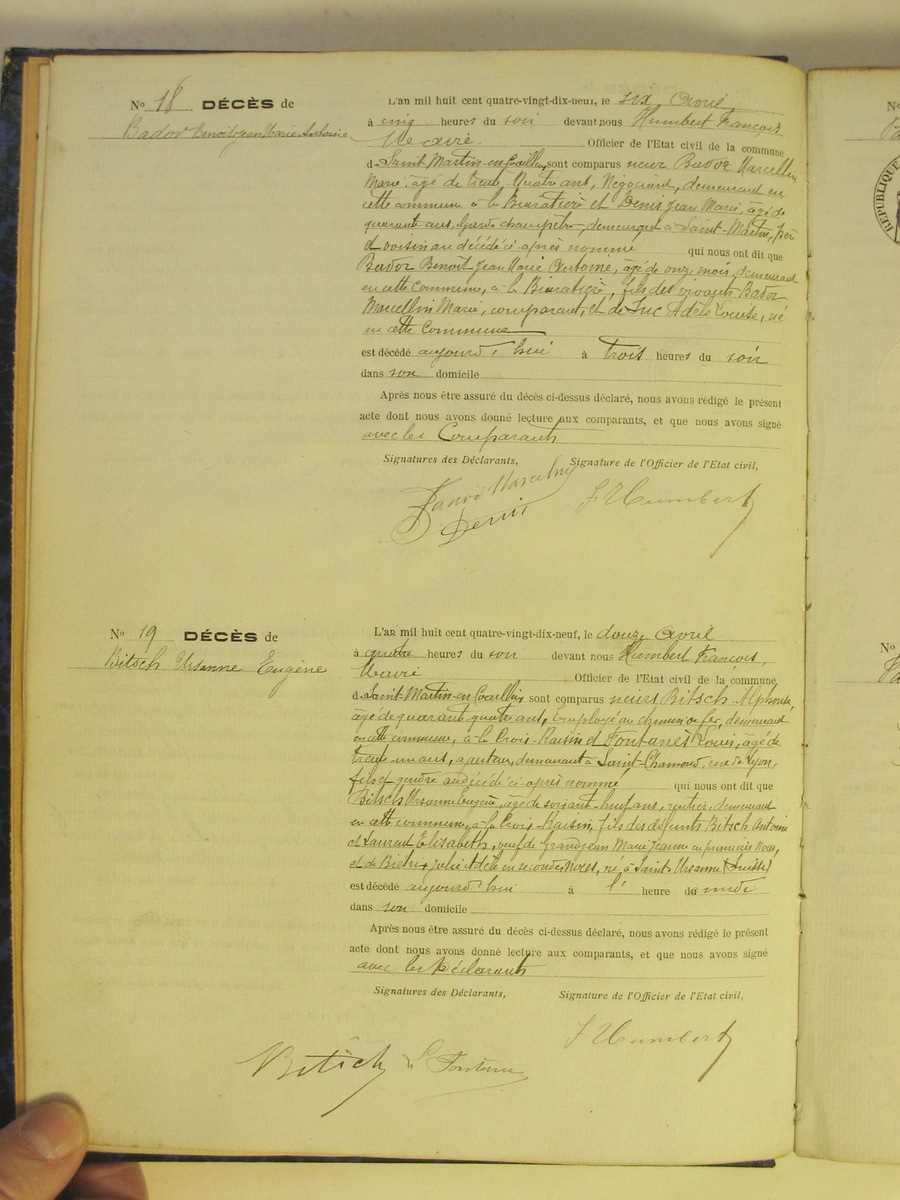 No 18 DÉCÈS de
Bador Benoit Jean Marie Antoine
L'an mil huit cent quatre-vingt-dix-neuf, le six Avril
à cinq heures du soir devant nous Humbert François
Maire Officier de l'Etat civil de la commune
de Saint Martin-en-Coailleux, sont comparus Bador Marcellin
Marie, âgé de trente quatre ans, Négociant, demeurant en
cette commune à la et Denis Jean Marie, âgé de
quarante ans Garde champêtre, demeurant à Saint-Martin, père
et voisin au décédé ci-après nommé qui nous ont dit que
Bador Benoît Jean Marie Antoine, âgé de onze mois, demeurant
en cette Commune, à la fils des vivants Bador
Marcellin Marie, comparant, et de Adèle Louise, né
en cette Commune
est décédé aujourd'hui à trois heures du soir
dans son domicile
Après nous être assuré du décès ci-dessus déclaré, nous avons rédigé le présent
acte dont nous avons donné lecture aux comparants, et que nous avons signé
avec les Comparants
Signatures des Déclarants, Signature de l'Officier de l'Etat civil,
Marcellin
Denis
Humbert
No 19 DÉCÈS de
Bitsch Ursanne Eugène
L'an mil huit cent quatre-vingt-dix-neuf, le douze Avril
à quatre heures du soir devant nous Humbert François,
Maire Officier de l'Etat civil de la commune
de Saint-Martin-en-Coailleux sont comparus Bitsch Alphonse,
âgé de quarante quatre ans, Employé au chemin de fer, demeurant
en cette commune, à la Croix-Raisin et Fontanes Louis, âgé de
trente-un ans, ajusteur, demeurant à Saint-Chamond, rue de Lyon,
fils et gendre au décédé ci-après nommé qui nous ont dit que
Bitsch Ursanne Eugène, âgé de soixante-huit ans, rentier, demeurant
en cette commune, à la Croix-Raisin, fils des défunts Bitsch Antoine
et Laurent Elisabeth, veuf de Grandjean Marie Jeanne en premières Noces,
et de Julie Adèle en secondes Noces, né à Saint-Ursanne (Suisse)
est décédé aujourd'hui à l' heure du midi
dans son domicile
Après nous être assuré du décès ci-dessus déclaré, nous avons rédigé le présent
acte dont nous avons donné lecture aux comparants, et que nous avons signé
avec les Déclarants
Signatures des Déclarants, Signature de l'Officier de l'Etat civil,
Humbert
Bitsch L Fontanes
No
No
RÉPUBLIQUE